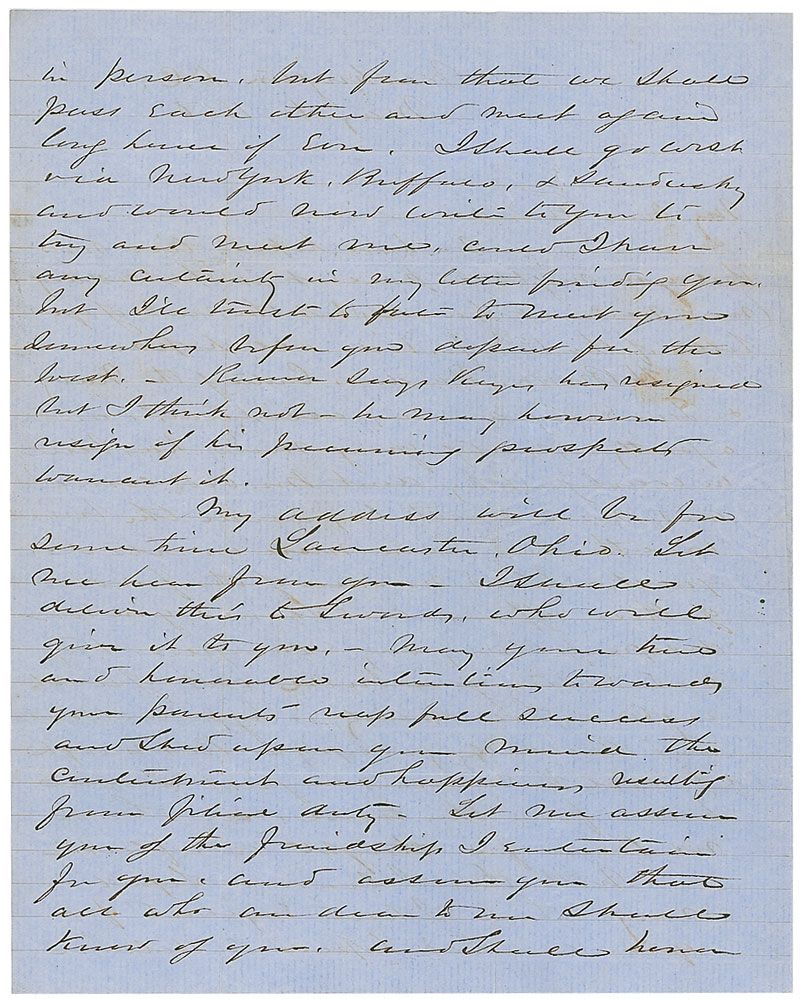 in person. but fear that we shall
pass each other and meet again
long hence if Ever. I shall go west
via New York, Buffalo, & Sandusky
and would now write to you to
try and meet me, could I have
any certainty in my letter finding you.
but I'll trust to to meet you
Somewhere before you depart for the
West. - Rumor says Keyes has resigned
but I think not - he may however
resign if his pecuniary prospects
warrant it.
My address will be for
some time Lancaster, Ohio. Let
me hear from you - I shall
deliver this to Swords, who will
give it to you. - May your true
and honorable intentions towards
your parents reap full success
and Shed upon your mind the
contentment and happiness resulting
from filial duty - Let me assure
you of the friendship I entertain
for you. and assure you that
all who are dear to me Shall
Know of you. and Shall honor